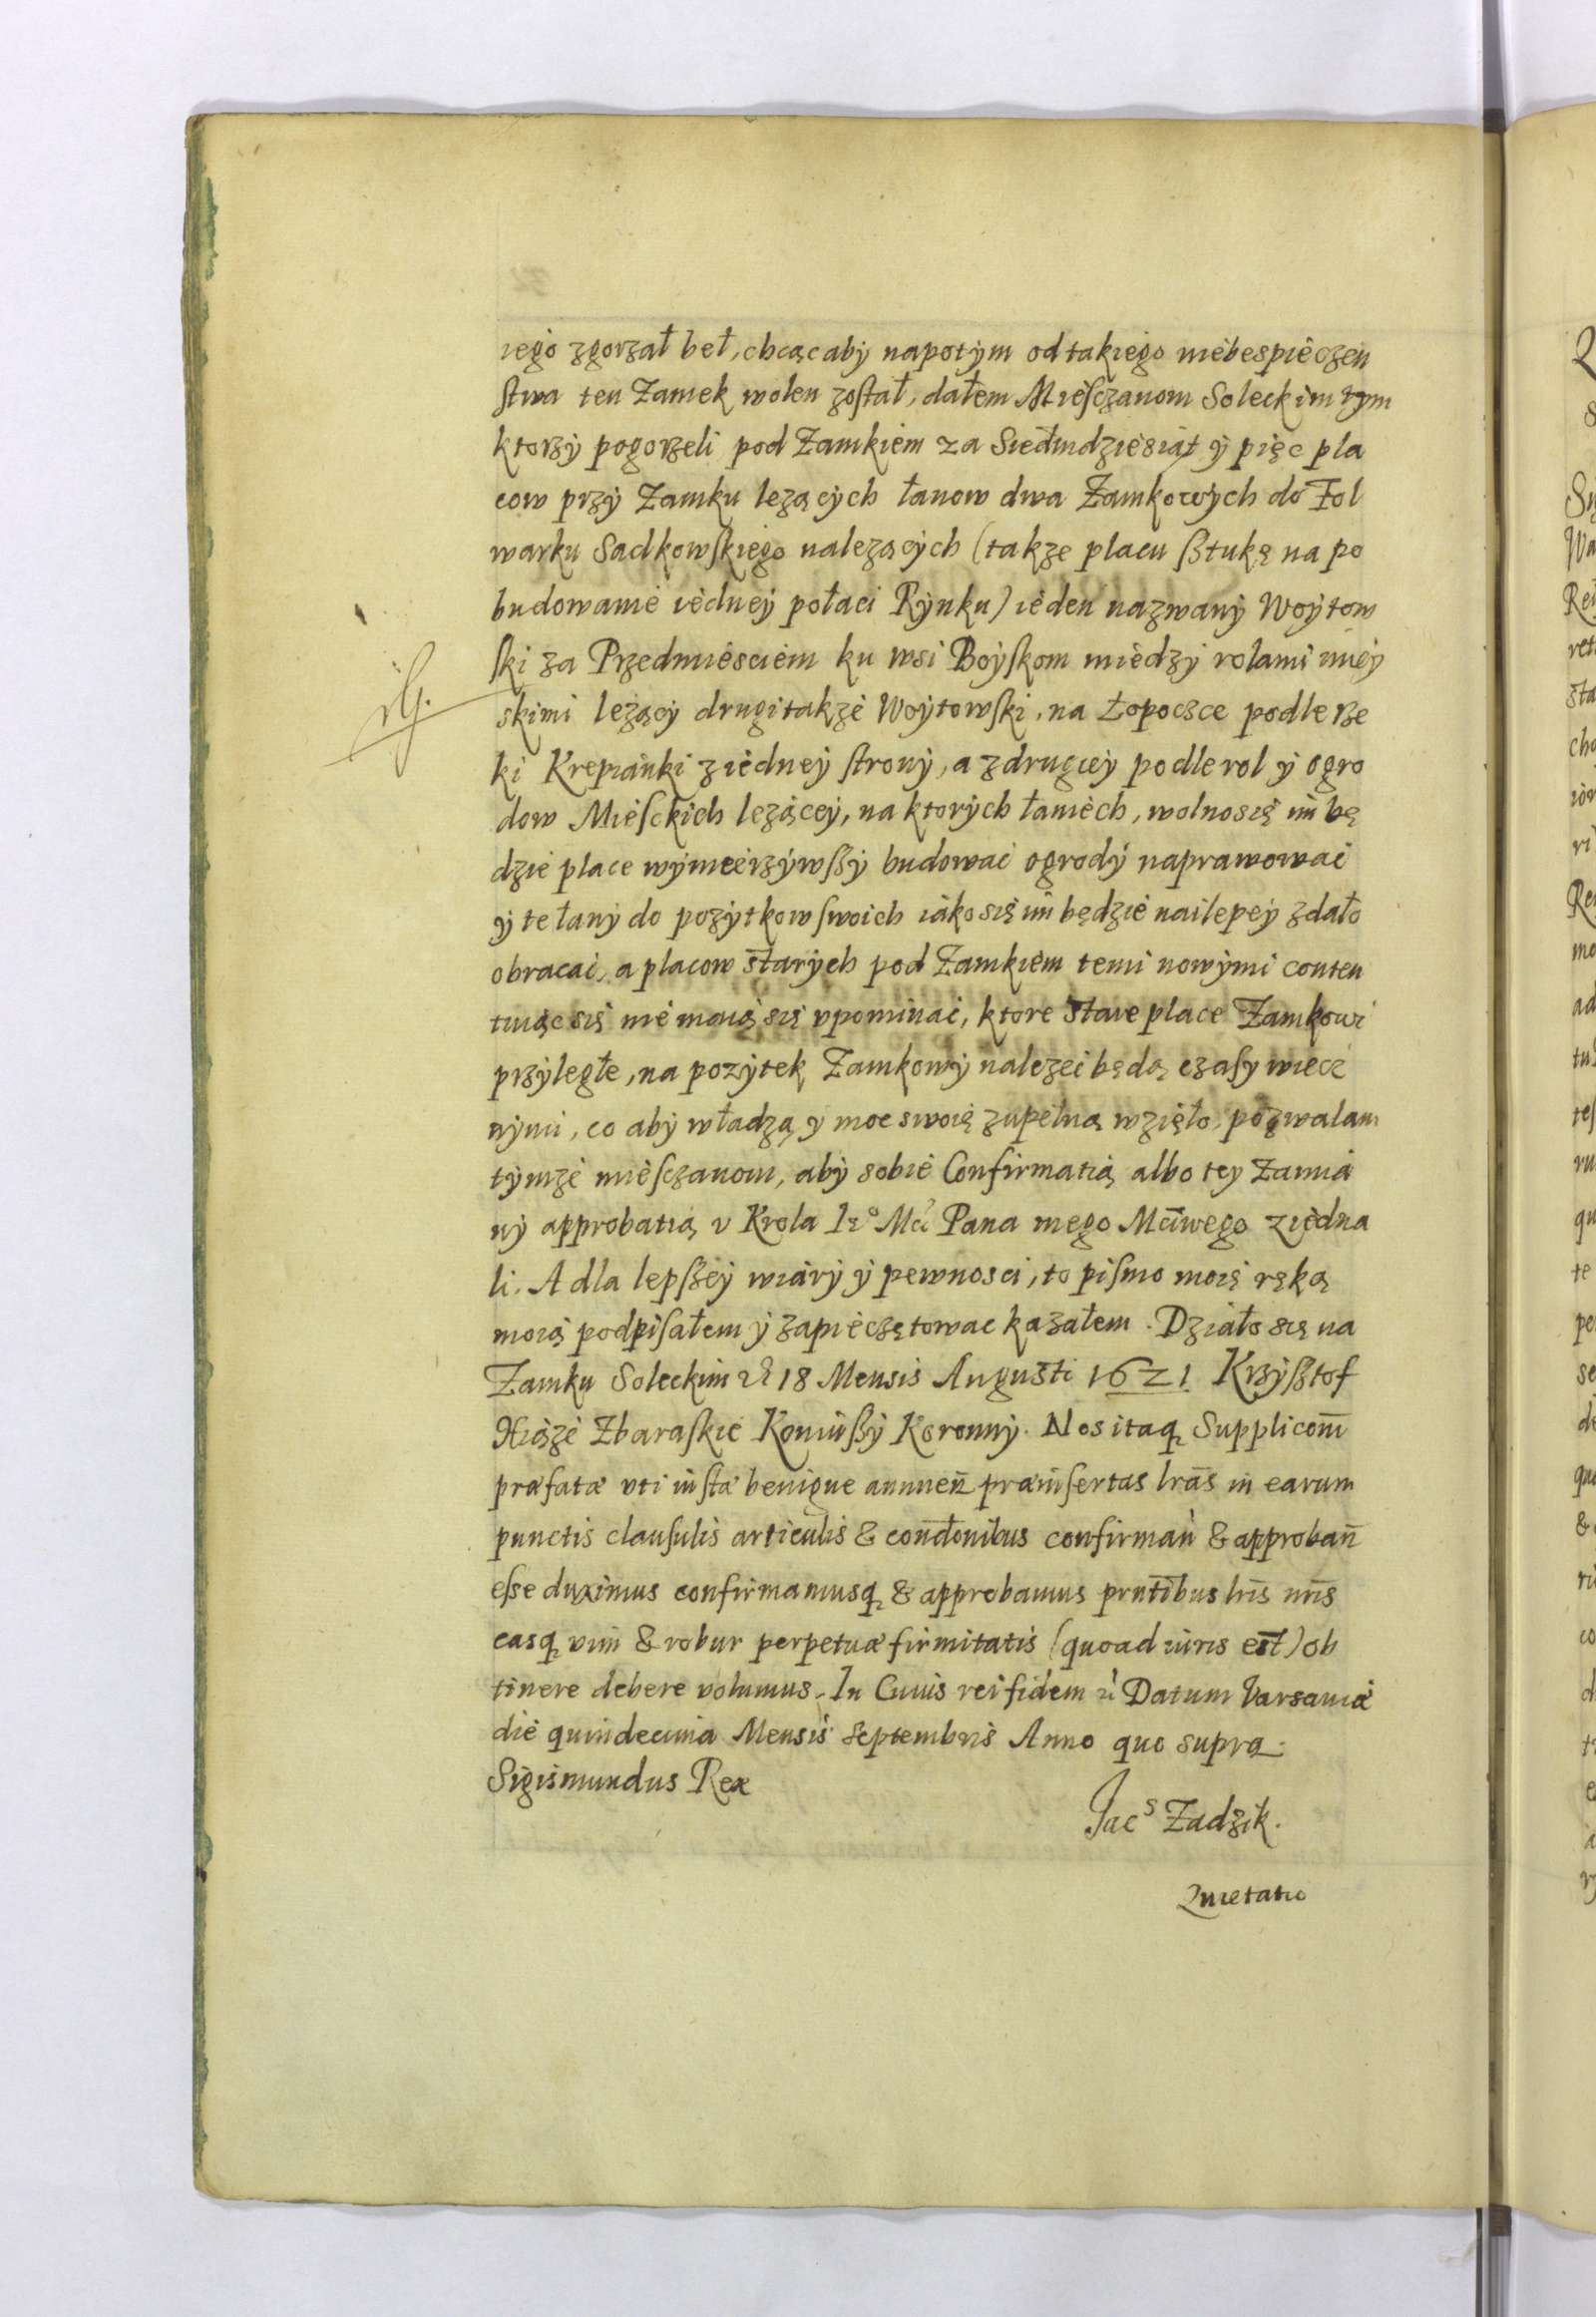 iego zgorzał beł, chcąc aby napotym od takiego niebespieczen
stwa ten Zamek wolen został, dałem Miesczanom Soleckim tym
ktorzy pogorzeli pod Zamkiem za Siedmdziesiąt y pięc pla
cow przy Zamku lezących łanow dwa Zamkowych do Fol
warku Sadkowskiego nalezących (takze placu sztukę na po
budowanie iedney połaci Rynku) ieden nazwany Woytow
ski za Przedmiesciem ku wsi Boyskom miedzy rolami miey
skimi leżący drugi takze Woytowski, na Łopoczce podle rze
ki Krepianki ziedney strony, a zdrugiey podle rol y ogro
dow Miesckich lezącey, na ktorych łaniech, wolno się im bę
dzie place wymierzywszy budowac ogrody naprawowac
y te łany do pozytkow swoich iako się im będzie nailepey zdało
obracac, a placow starych pod Zamkiem temi nowymi conten
tuiąc się nie maią się vpominac, ktore stare place Zamkowi
przyległe, na pozytek Zamkowy nalezec będą czasy wiecz
nymi, co aby władzą y moc swoię zupełną wzięło, pozwalam
tymze miesczanom, aby sobie Confirmatią albo tey Zamia
ny approbatią v Krola Ie° Mci Pana mego Mciwego ziedna
li. A dla lepszey wiary y pewnosci, to pismo moię ręką
moią podpisałem y zapieczętowac kazałem. Działo się na
Zamku Soleckim 18 Mensis Augusti 1621 Krzysztof
Xiąże Zbaraskie Koniuszy Koronny. Nos itaq Supplicom̄
præfatæ vti iustæ benigne annuen̄ præinsertas lrās in earum
punctis clausulis articulis & cond̄onibus confirman̄ & approban̄
esse duximus confirmamusq & approbamus prntībus lrīs nrīs
easq vim & robur perpetuæ firmitatis (quoad iuris est) ob
tinere debere volumus. In Cuius rei fidem Datum Varsauiæ
die quindecima Mensis Septembris Anno quo supra.
Sigismundus Rex
Jacˢ Zadzik.
Quietatio